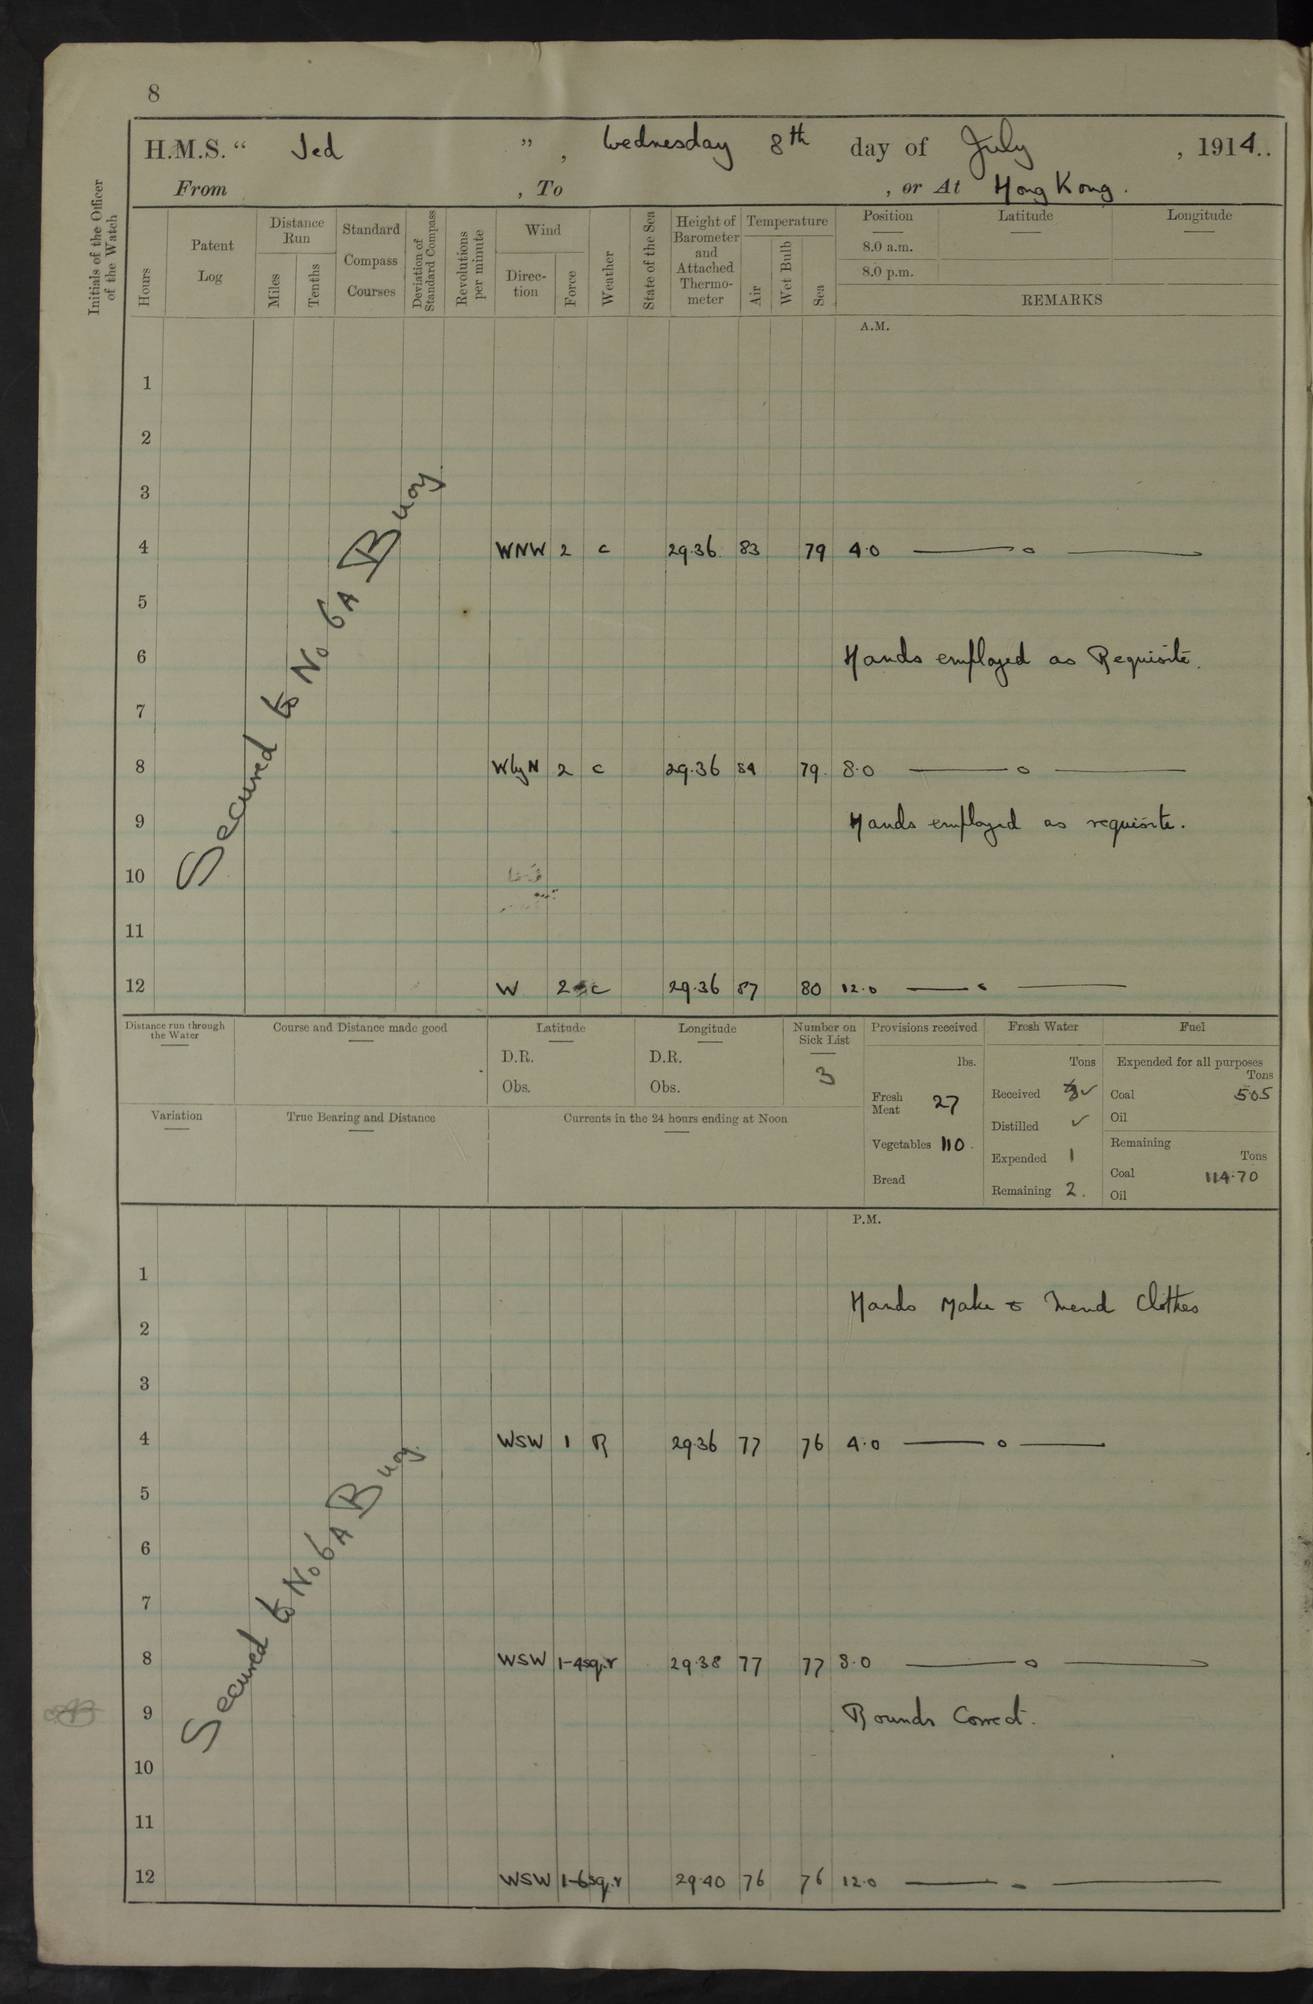 8
H.M.S. " Jed ", Wednesday 8th day of July, 1914..
From , To , or At Hong Kong.
Initials of the Officer of the Watch
Hours
Patent Log
Distance Run
Miles
Tenths
Standard Compass Courses
Deviation of Standard Compass
Revolutions per minute
Wind
Direc-tion
Force
Weather
State of the Sea
Height of Barometer and Attached Thermo-meter
Temperature
Air
Wet Bulb
Sea
Position Latitude Longitude
8.0 a.m.
8.0 p.m.
REMARKS
A.M.
1
2
3
4 WNW 2 c 29.36 83 79 4.0 —— o ——
5
6 Hands employed as Requisite.
7
8 WbyN 2 c 29.36 84 79. 8.0 —— o ——
9 Hands employed as requisite.
10
11
12 W 2 c 29.36 87 80 12.0 —— ——
Secured to No 6A Buoy.
Distance run through the Water
Course and Distance made good
Latitude
D.R.
Obs.
Longitude
D.R.
Obs.
Number on Sick List
3
Provisions received
lbs.
Fresh Meat 27
Vegetables 110.
Bread
Fresh Water
Tons
Received ✓
Distilled ✓
Expended 1
Remaining 2.
Fuel
Expended for all purposes
Tons
Coal 5.05
Oil
Remaining
Tons
Coal 114.70
Oil
Variation
True Bearing and Distance
Currents in the 24 hours ending at Noon
P.M.
1
Hands Make & Mend Clothes
2
3
4 WSW 1 R 29.36 77 76 4.0 —— o ——
5
6
7
8 WSW 1-4 sq.r 29.38 77 77 8.0 —— o ——
9 Rounds Correct.
10
11
12 WSW 1-6 sq.r 29.40 76 76 12.0 —— ——
Secured to No 6A Buoy.